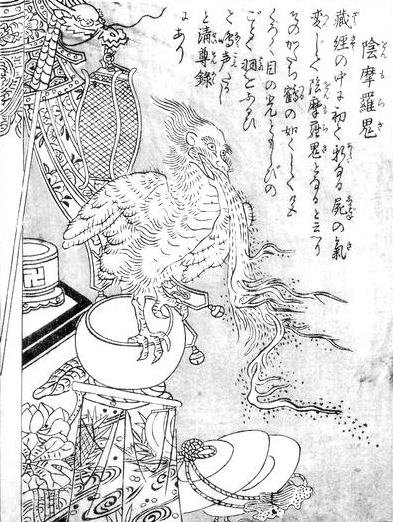 陰摩羅鬼
おんもらき
蔵経の中に初て新なる屍の気
変じて陰摩羅鬼となると云へり
そのかたち鶴の如くして色
くろく目の光ともしびの
ごとく羽をふるひ
て鳴声たかし
と清尊録
にあり